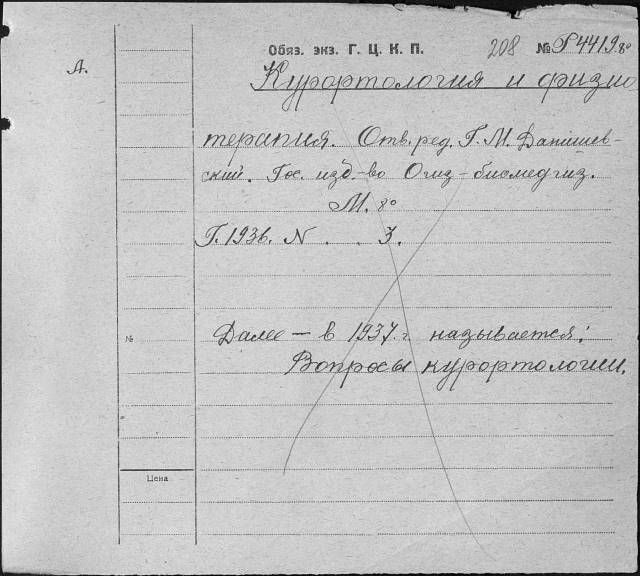 Обяз. экз. Г. Ц. К. П. 208 № P4419 8°
А.
Курортология и физио
терапия. Отв. ред. Г. М. Данишев-
ский. Гос. изд-во Огиз-биомедгиз.
М. 8°
Г. 1936. N . . 3.
№
Далее – в 1937 г. называется:
Вопросы курортологии.
Цена